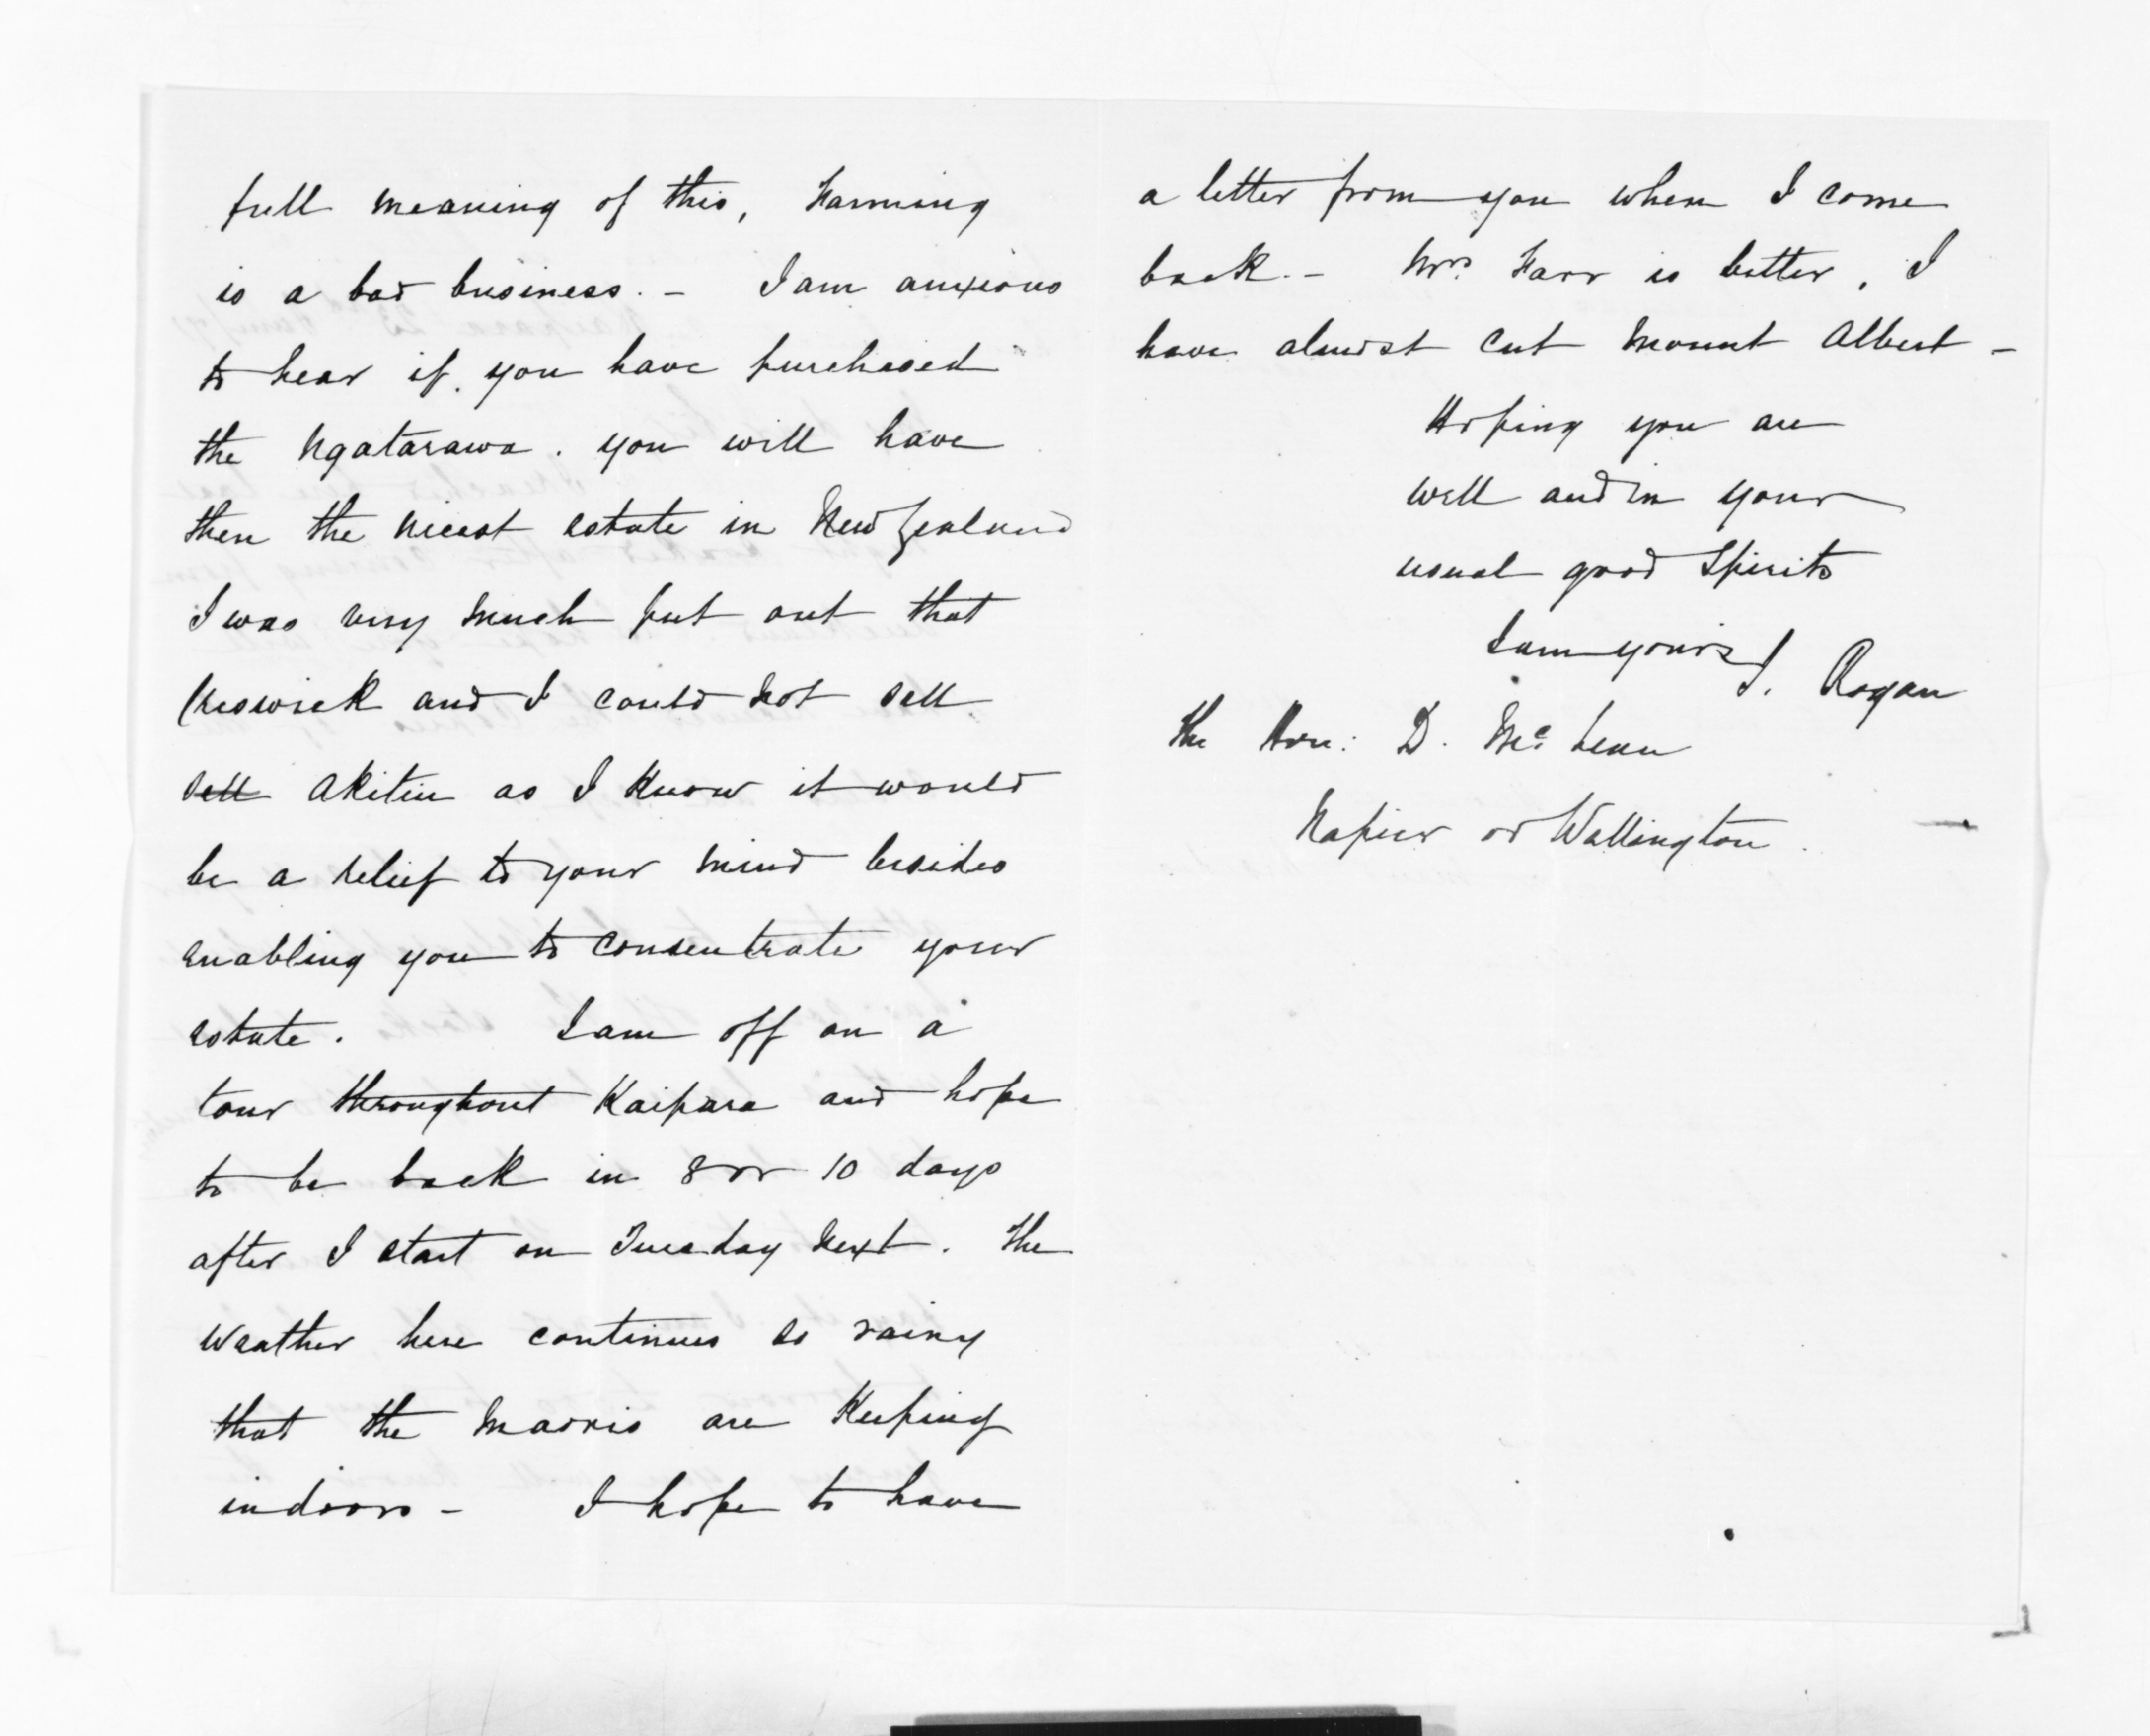 full meaning of this, Farming
is a bad business. - I am anxious
to hear if you have purchased
the Ngatarawa. you will have
then the nicest estate in New Zealand
I was very much put out that
Keswick and I could not sell
sell Akitiu as I know it would
be a relief to your mind besides
enabling you to consentrate your
estate. I am off on a
tour throughout Kaipara and hope
to be back in 8 or 10 days
after I start on Tuesday next. The
weather here continues so rainy
that the maoris are keeping
indoors - I hope to have
a letter from you when I come
back. - Mrs. Farr is better, I
have almost cut Mount Albert -
Hoping you are
well and in your
usual good spirits
I am yours
J. Rogan
The Hon: D. McLean
Napier or Wellington.